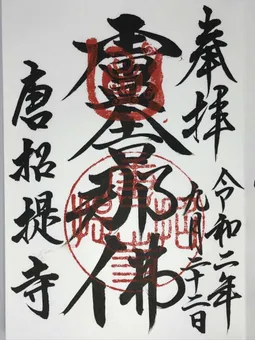 奉拝
令和二年
九月二十二日
盧舎那佛
唐招提寺